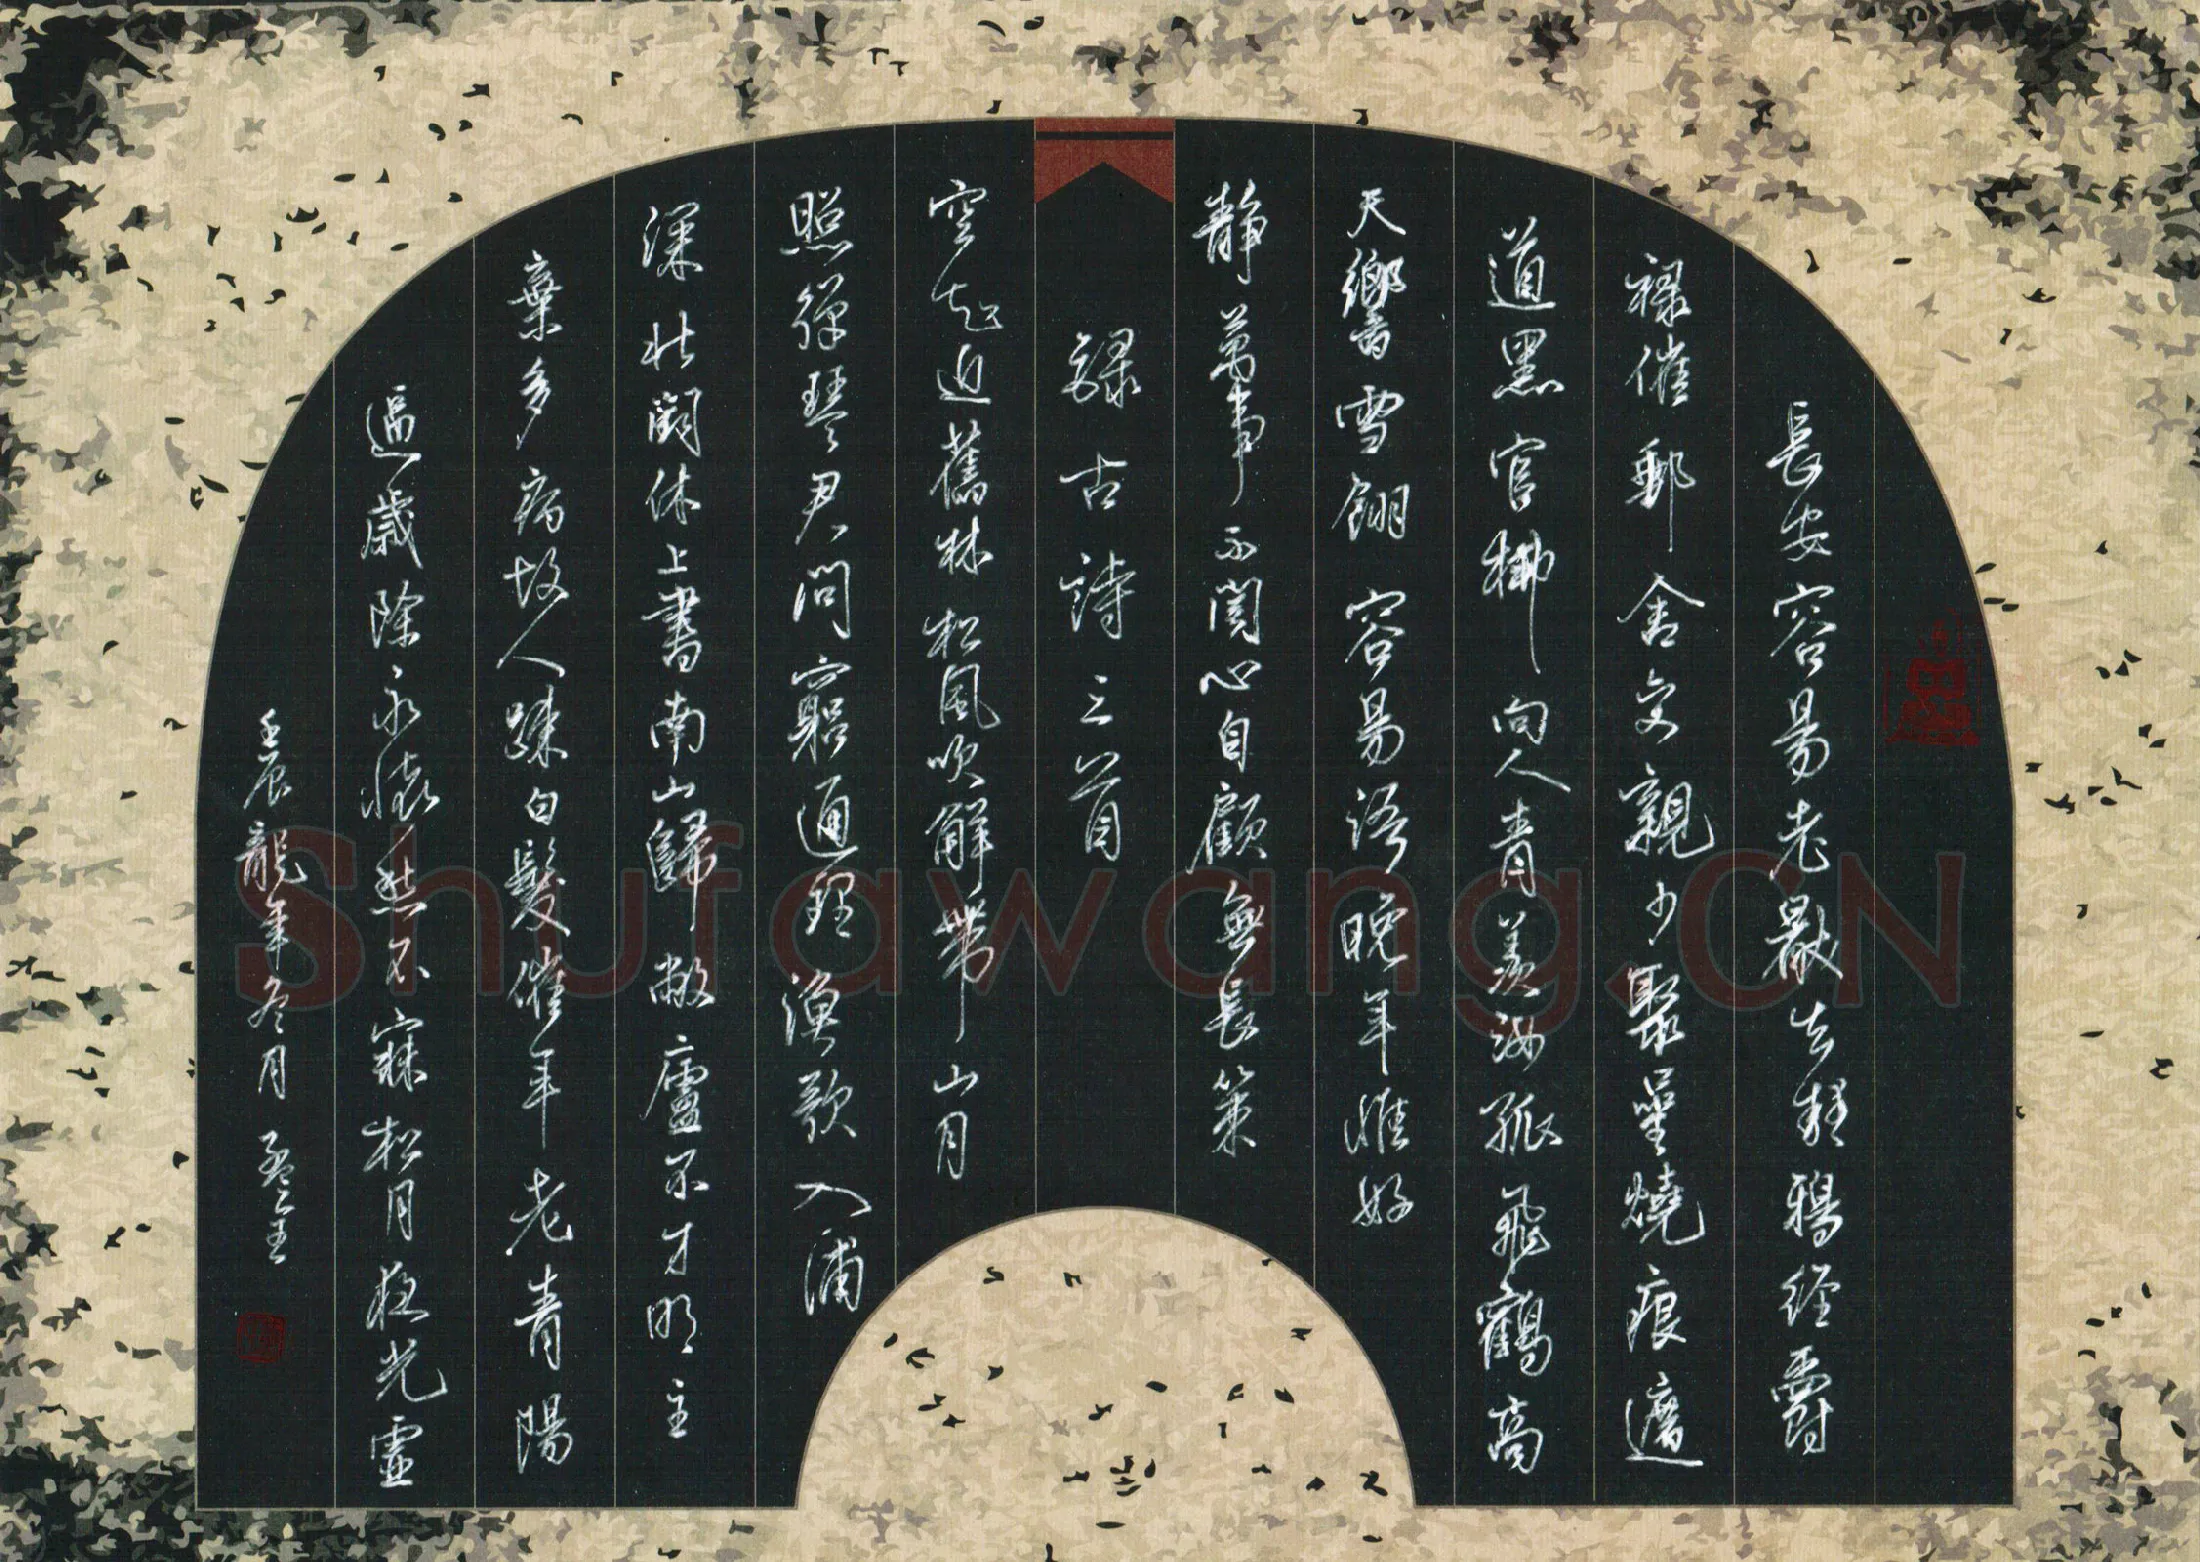 長安容易老厭去鴉經爵
祿催郵舍交親少聚星燒痕遮
道黑官柳向人青羨汝孤飛鶴高
天響雪翎容易語晚年惟好
靜萬事不關心自顧無長策
錄古詩三首
空知返舊林松風吹解帶山月
照彈琴君問窮通理漁歌入浦
深北闕休上書南山歸敝廬不才明主
棄多病故人疎白髮催年老青陽
逼歲除永懷愁不寐松月夜光虛
壬辰龍年冬月 孟
Shufawang.CN